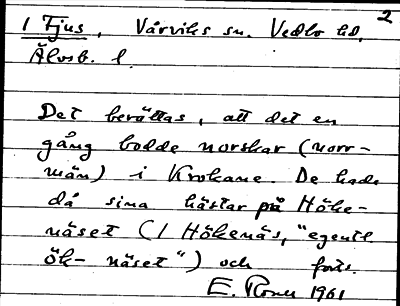 2
1 Fjus, Vårviks sn. Vedbo hd,
Älvsb. l.
Det berättas, att det en
gång bodde norskar (norr-
män) i Krokane. De hade
då sina hästar på Höke-
näset (1 Hökenäs, "egentl.
ök- näset") och forts.
E. 1961